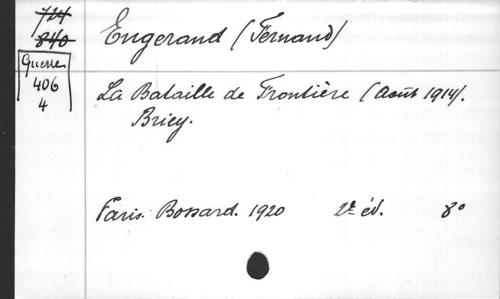 714
840
Guerres
406
4
Engerand (Fernand)
La Bataille de Frontière (Août 1914).
Briey.
Paris. Bossard. 1920 2e éd. 8°